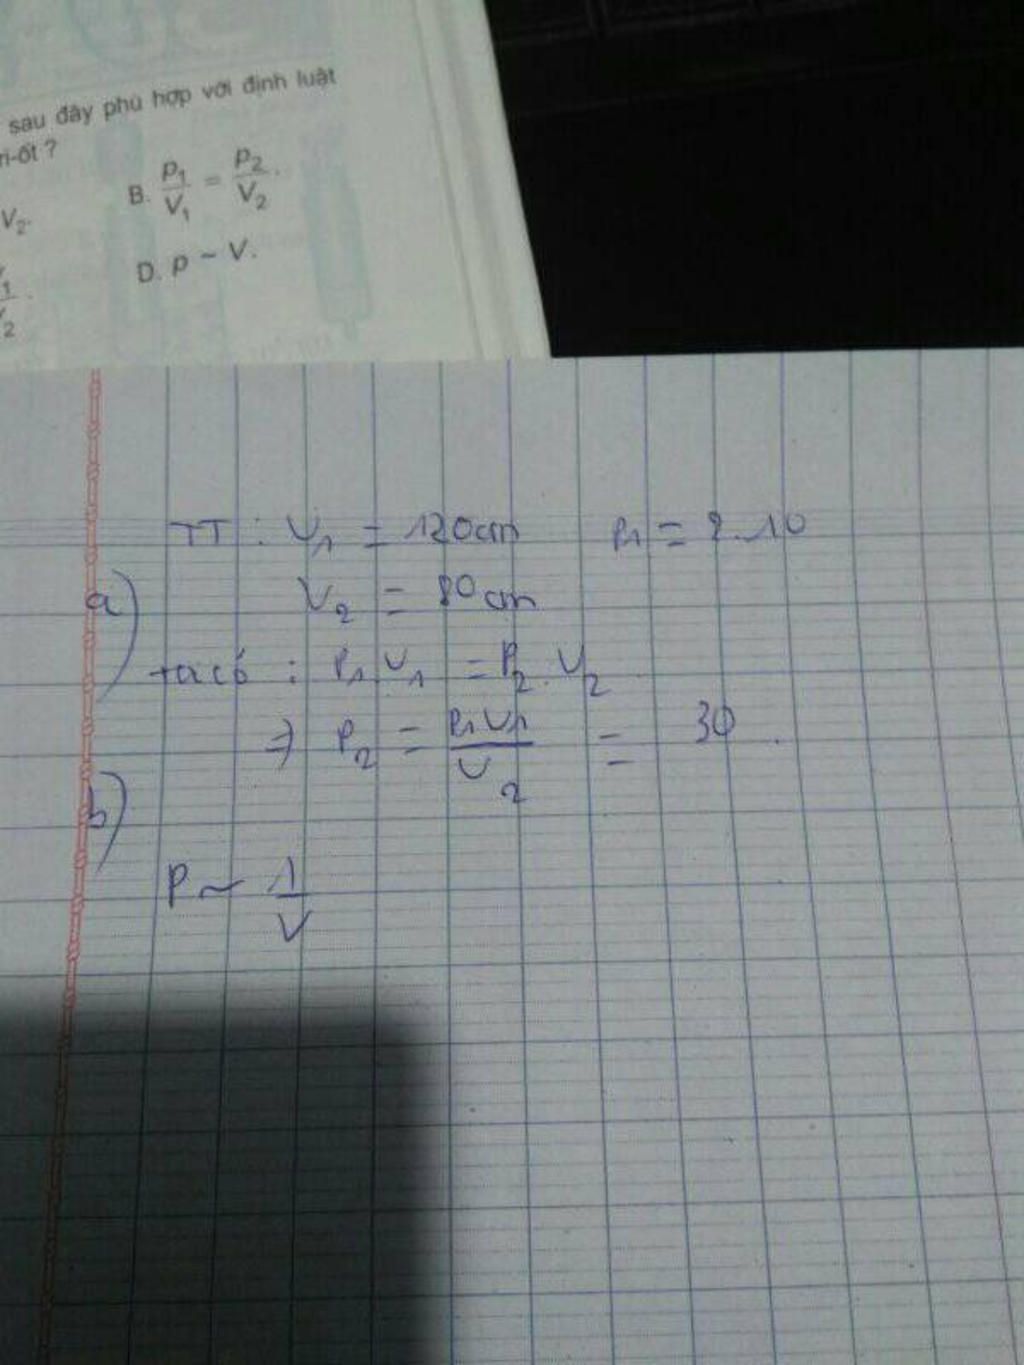 sau đây phù hợp với định luật
ri-ốt ?
V₂.
B. p₁/V₁ = p₂/V₂.
D. p ~ V.
TT : V₁ = 120cm P₁ = 2.10
a)
V₂ = 80cm
ta có : P₁ V₁ = P₂ . V₂
⇒ P₂ = P₁V₁/V₂ = 30
b)
P ~ 1/V